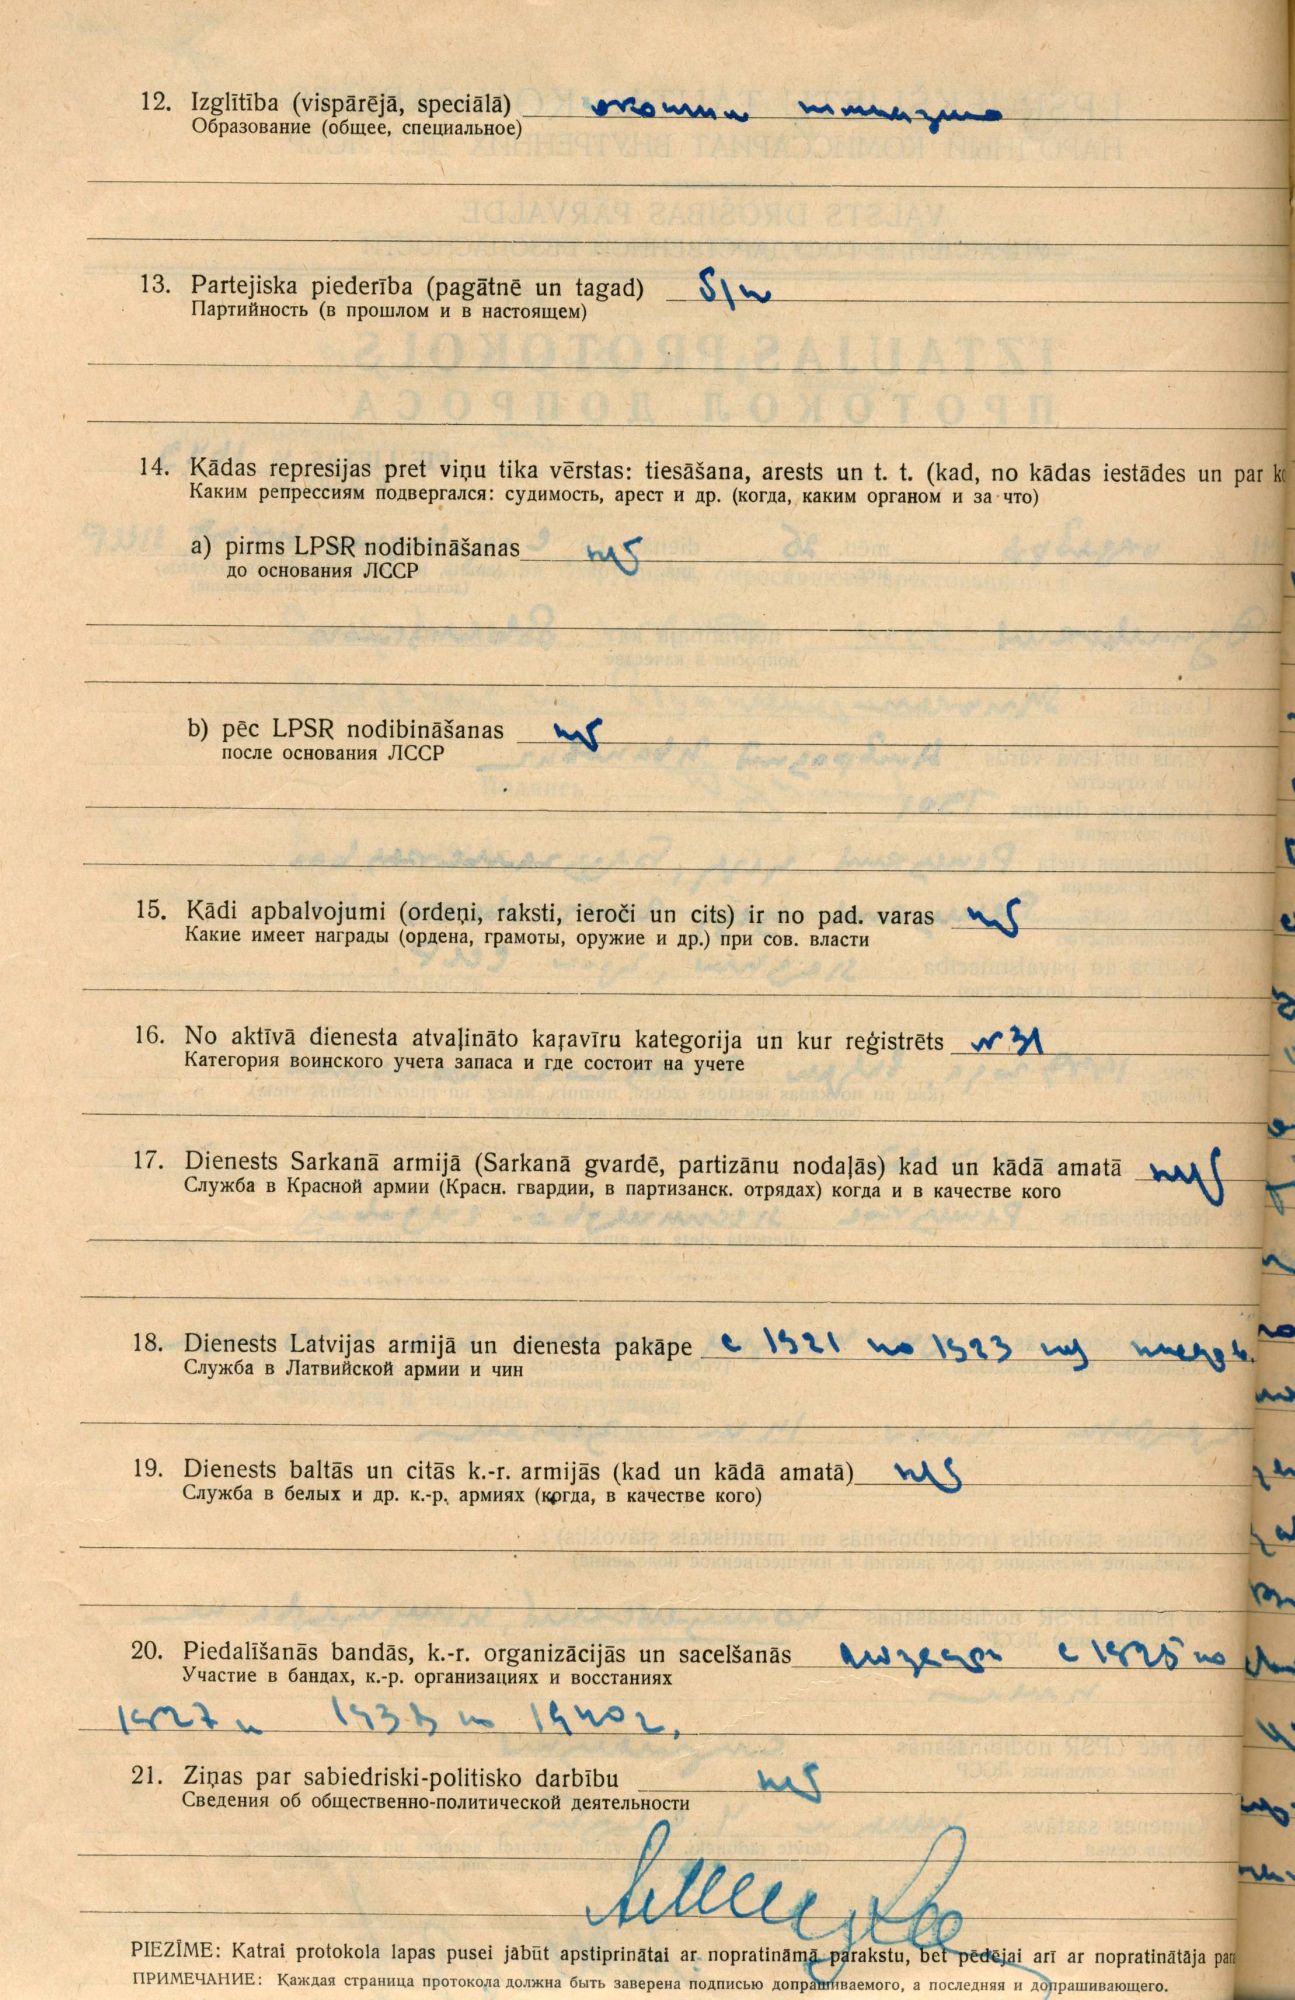 12. Izglītība (vispārējā, speciālā) окончил гимназию
Образование (общее, специальное)
13. Partejiska piederība (pagātnē un tagad) б/п
Партийность (в прошлом и в настоящем)
14. Kādas represijas pret viņu tika vērstas: tiesāšana, arests un t. t. (kad, no kādas iestādes un par
Каким репрессиям подвергался: судимость, арест и др. (когда, каким органом и за что)
a) pirms LPSR nodibināšanas нет
до основания ЛССР
b) pēc LPSR nodibināšanas нет
после основания ЛССР
15. Kādi apbalvojumi (ordeņi, raksti, ieroči un cits) ir no pad. varas нет
Какие имеет награды (ордена, грамоты, оружие и др.) при сов. власти
16. No aktīvā dienesta atvaļināto kaŗavīru kategorija un kur reģistrēts
Категория воинского учета запаса и где состоит на учете
17. Dienests Sarkanā armijā (Sarkanā gvardē, partizānu nodaļās) kad un kādā amatā нет
Служба в Красной армии (Красн. гвардии, в партизанск. отрядах) когда и в качестве кого
18. Dienests Latvijas armijā un dienesta pakāpe с 1921 по 1923
Служба в Латвийской армии и чин
19. Dienests baltās un citās k.-r. armijās (kad un kādā amatā) нет
Служба в белых и др. к.-р. армиях (когда, в качестве кого)
20. Piedalīšanās bandās, k.-r. organizācijās un sacelšanās айзсарг с 1925 по
Участие в бандах, к.-р. организациях и восстаниях
1927 и 1933 по 1940 г.
21. Ziņas par sabiedriski-politisko darbību нет
Сведения об общественно-политической деятельности
PIEZĪME: Katrai protokola lapas pusei jābūt apstiprinātai ar nopratināmā parakstu, bet pēdējai arī ar nopratinātāja
ПРИМЕЧАНИЕ: Каждая страница протокола должна быть заверена подписью допрашиваемого, а последняя и допрашивающего.